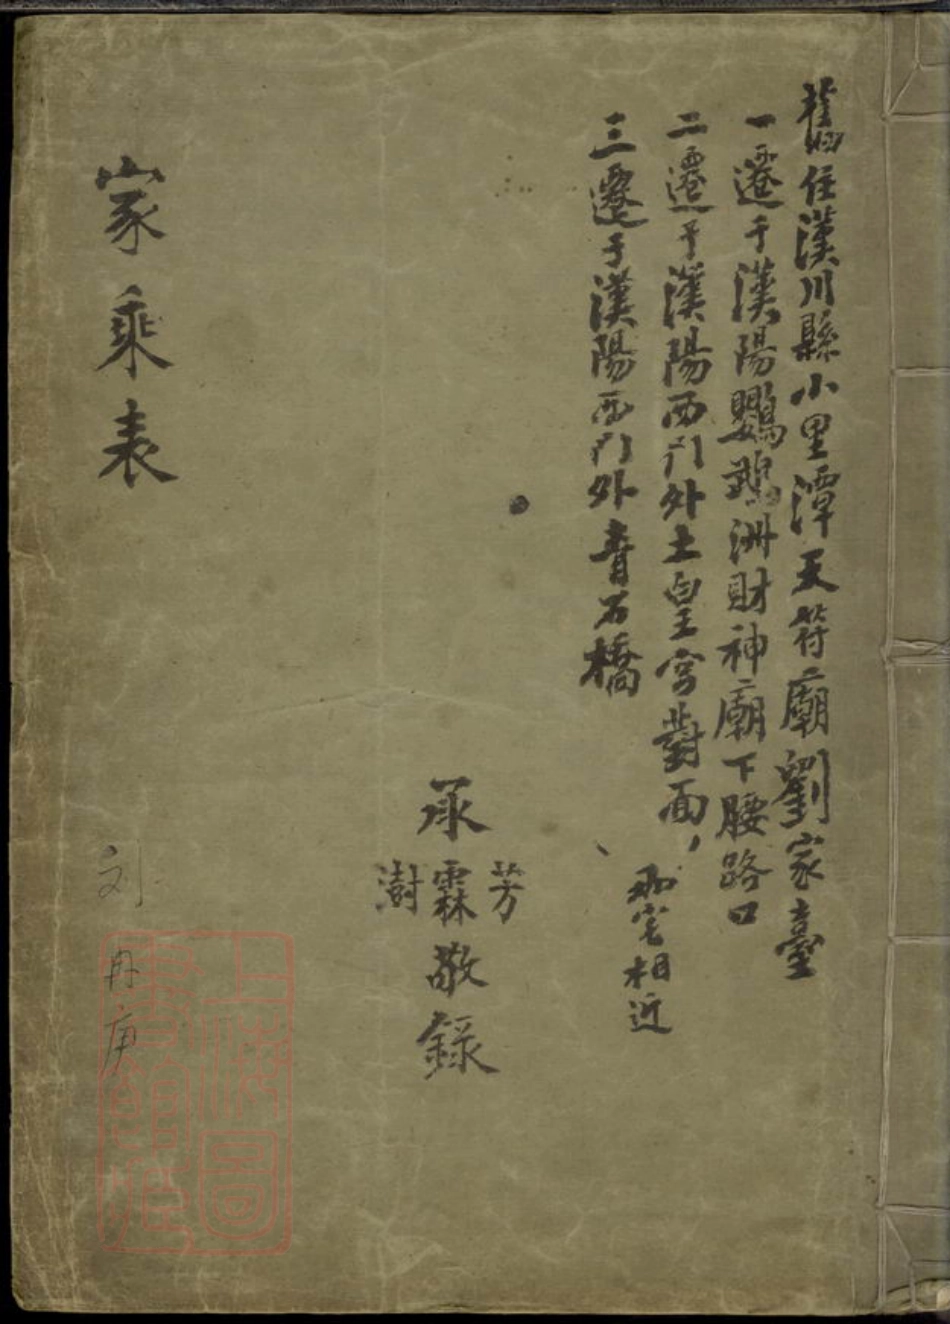 舊住漢川縣小里潭天符廟劉家臺
一遷于漢陽鸚鵡洲財神廟下腰路口
二遷于漢陽西門外土皇宮對面，
兩宅相近
三遷于漢陽西门外青石橋
承 芳霖澍 敬錄
家乘表
刘
冉庚
上海圖書館藏